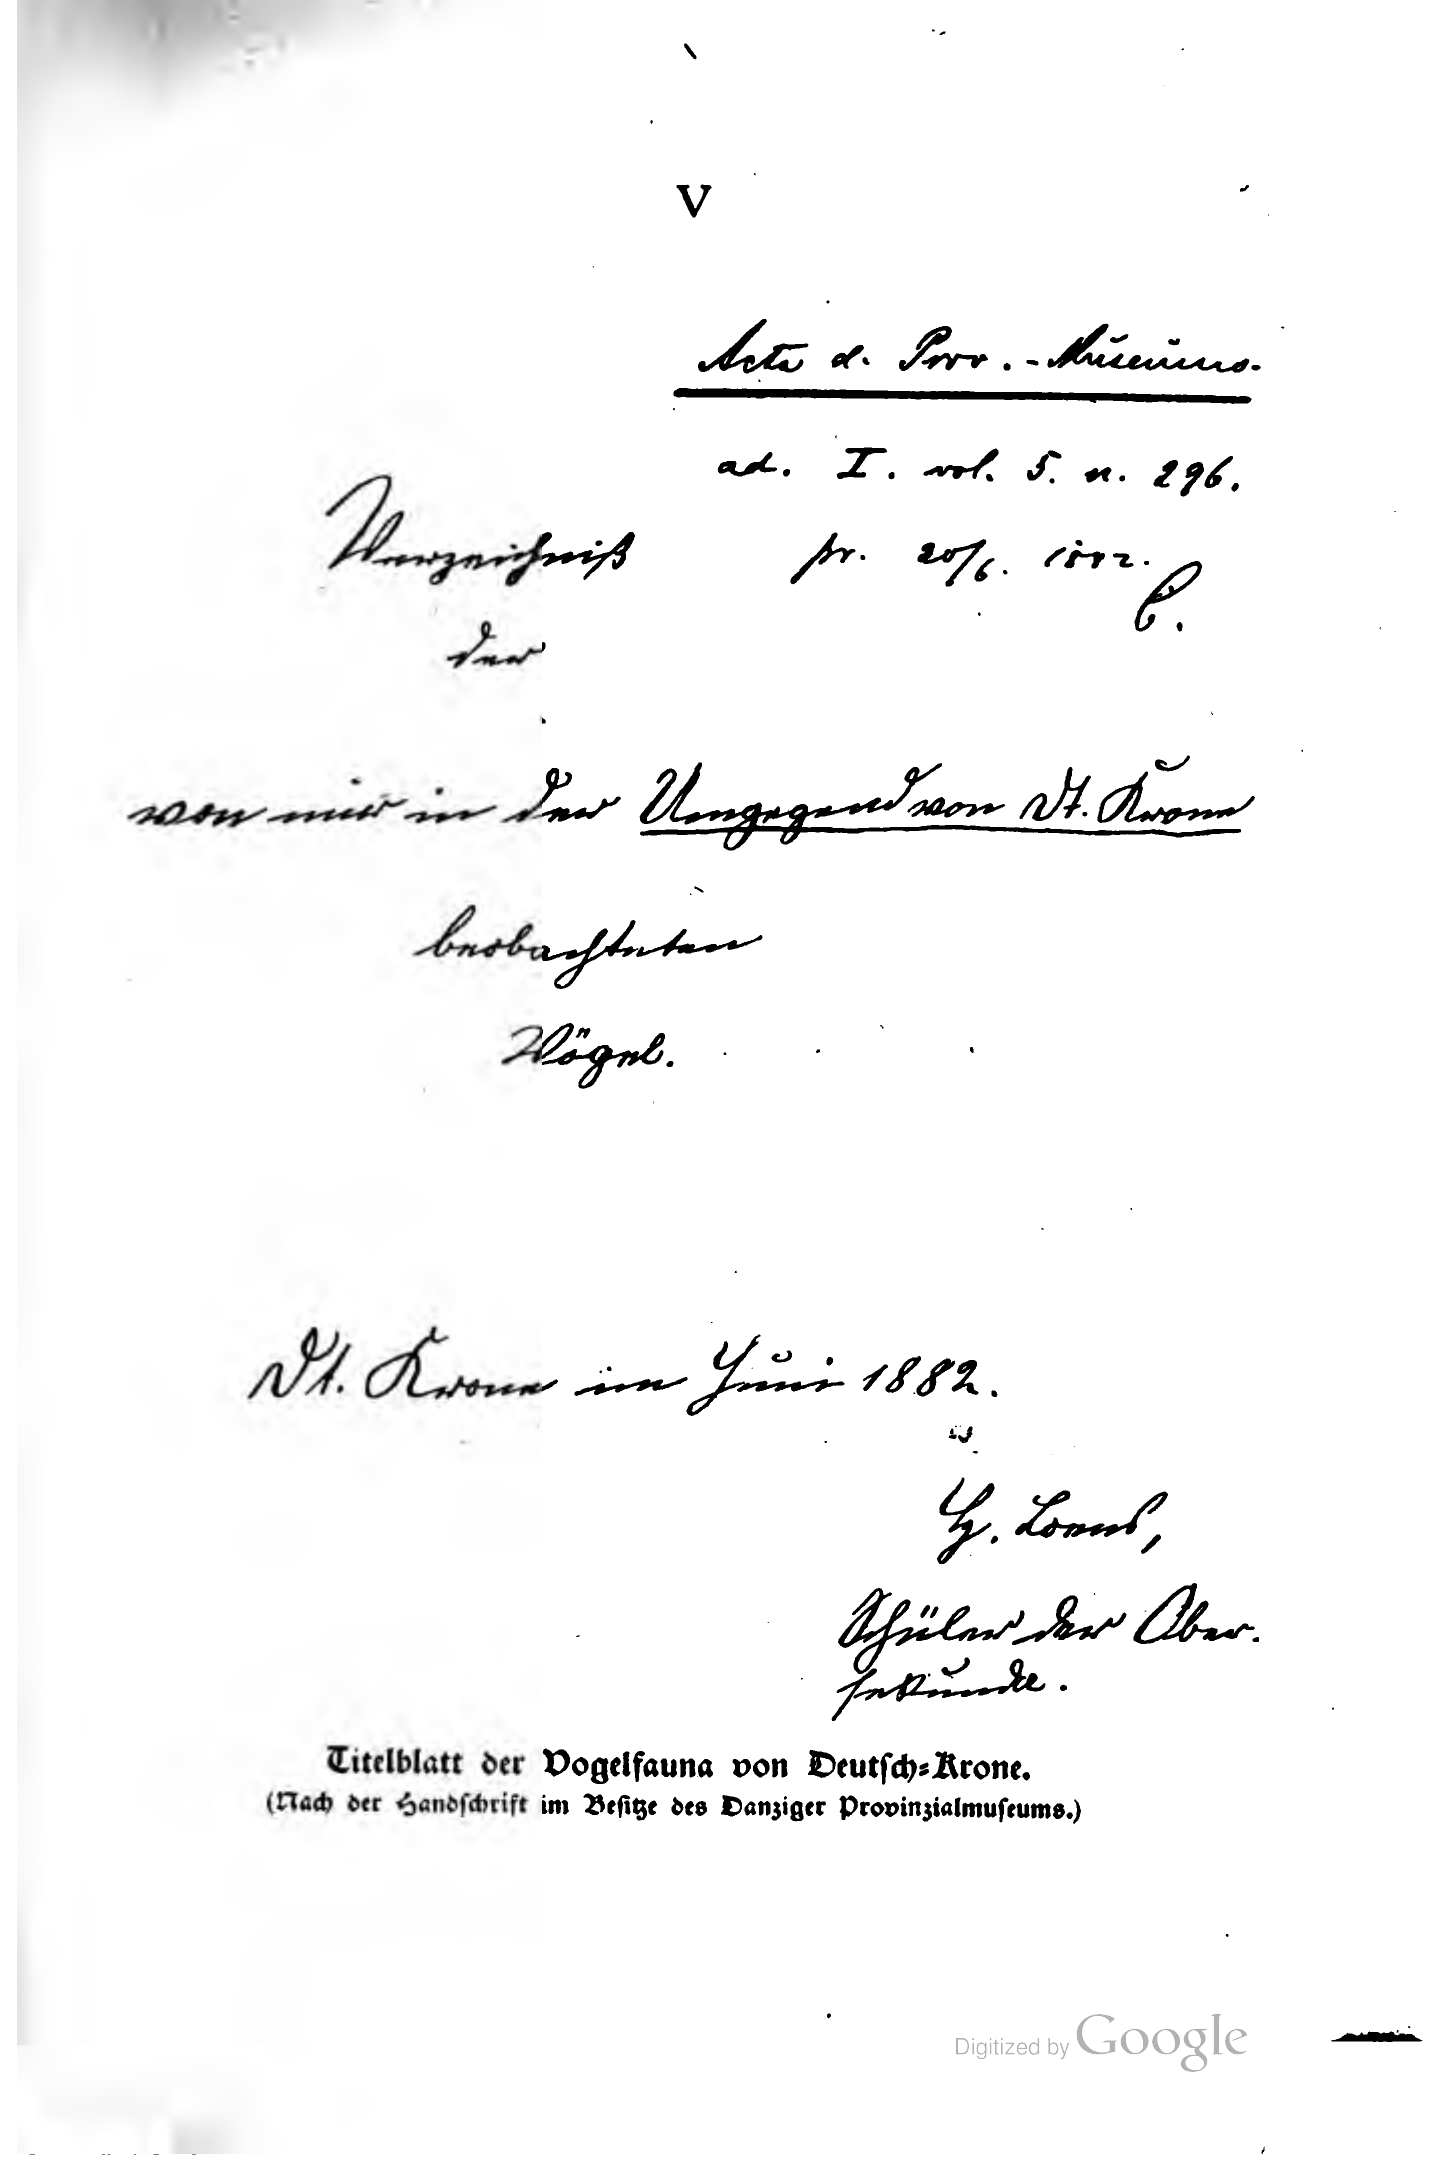 V
Acta d. Prov.-Museums.
ad. I. vol. 5. n. 296.
Verzeichniß
pr. 20/6. 1882.
C.
der
von mir in der Umgegend von Dt. Krone
beobachteten
Vögel.
Dt. Krone im Juni 1882.
H. Loens,
Schüler der Ober-
sekunda.
Titelblatt der Vogelfauna von Deutsch-Krone.
(Nach der Handschrift im Besitze des Danziger Provinzialmuseums.)
Digitized by Google